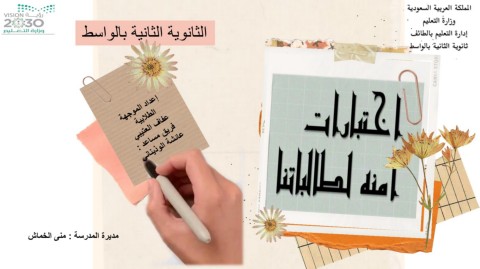 المملكة العربية السعودية
وزارة التعليم
إدارة التعليم بالطائف
ثانوية الثانية بالواسط
VISION رؤية
2030
وزارة التعليم
الثانوية الثانية بالواسط
إعداد الموجهة
الطلابية
عفاف العتيبي
فريق مساعد :
عائشة الوذيناني
اختبارات
امنه لطالباتنا
مديرة المدرسة : منى الخماش